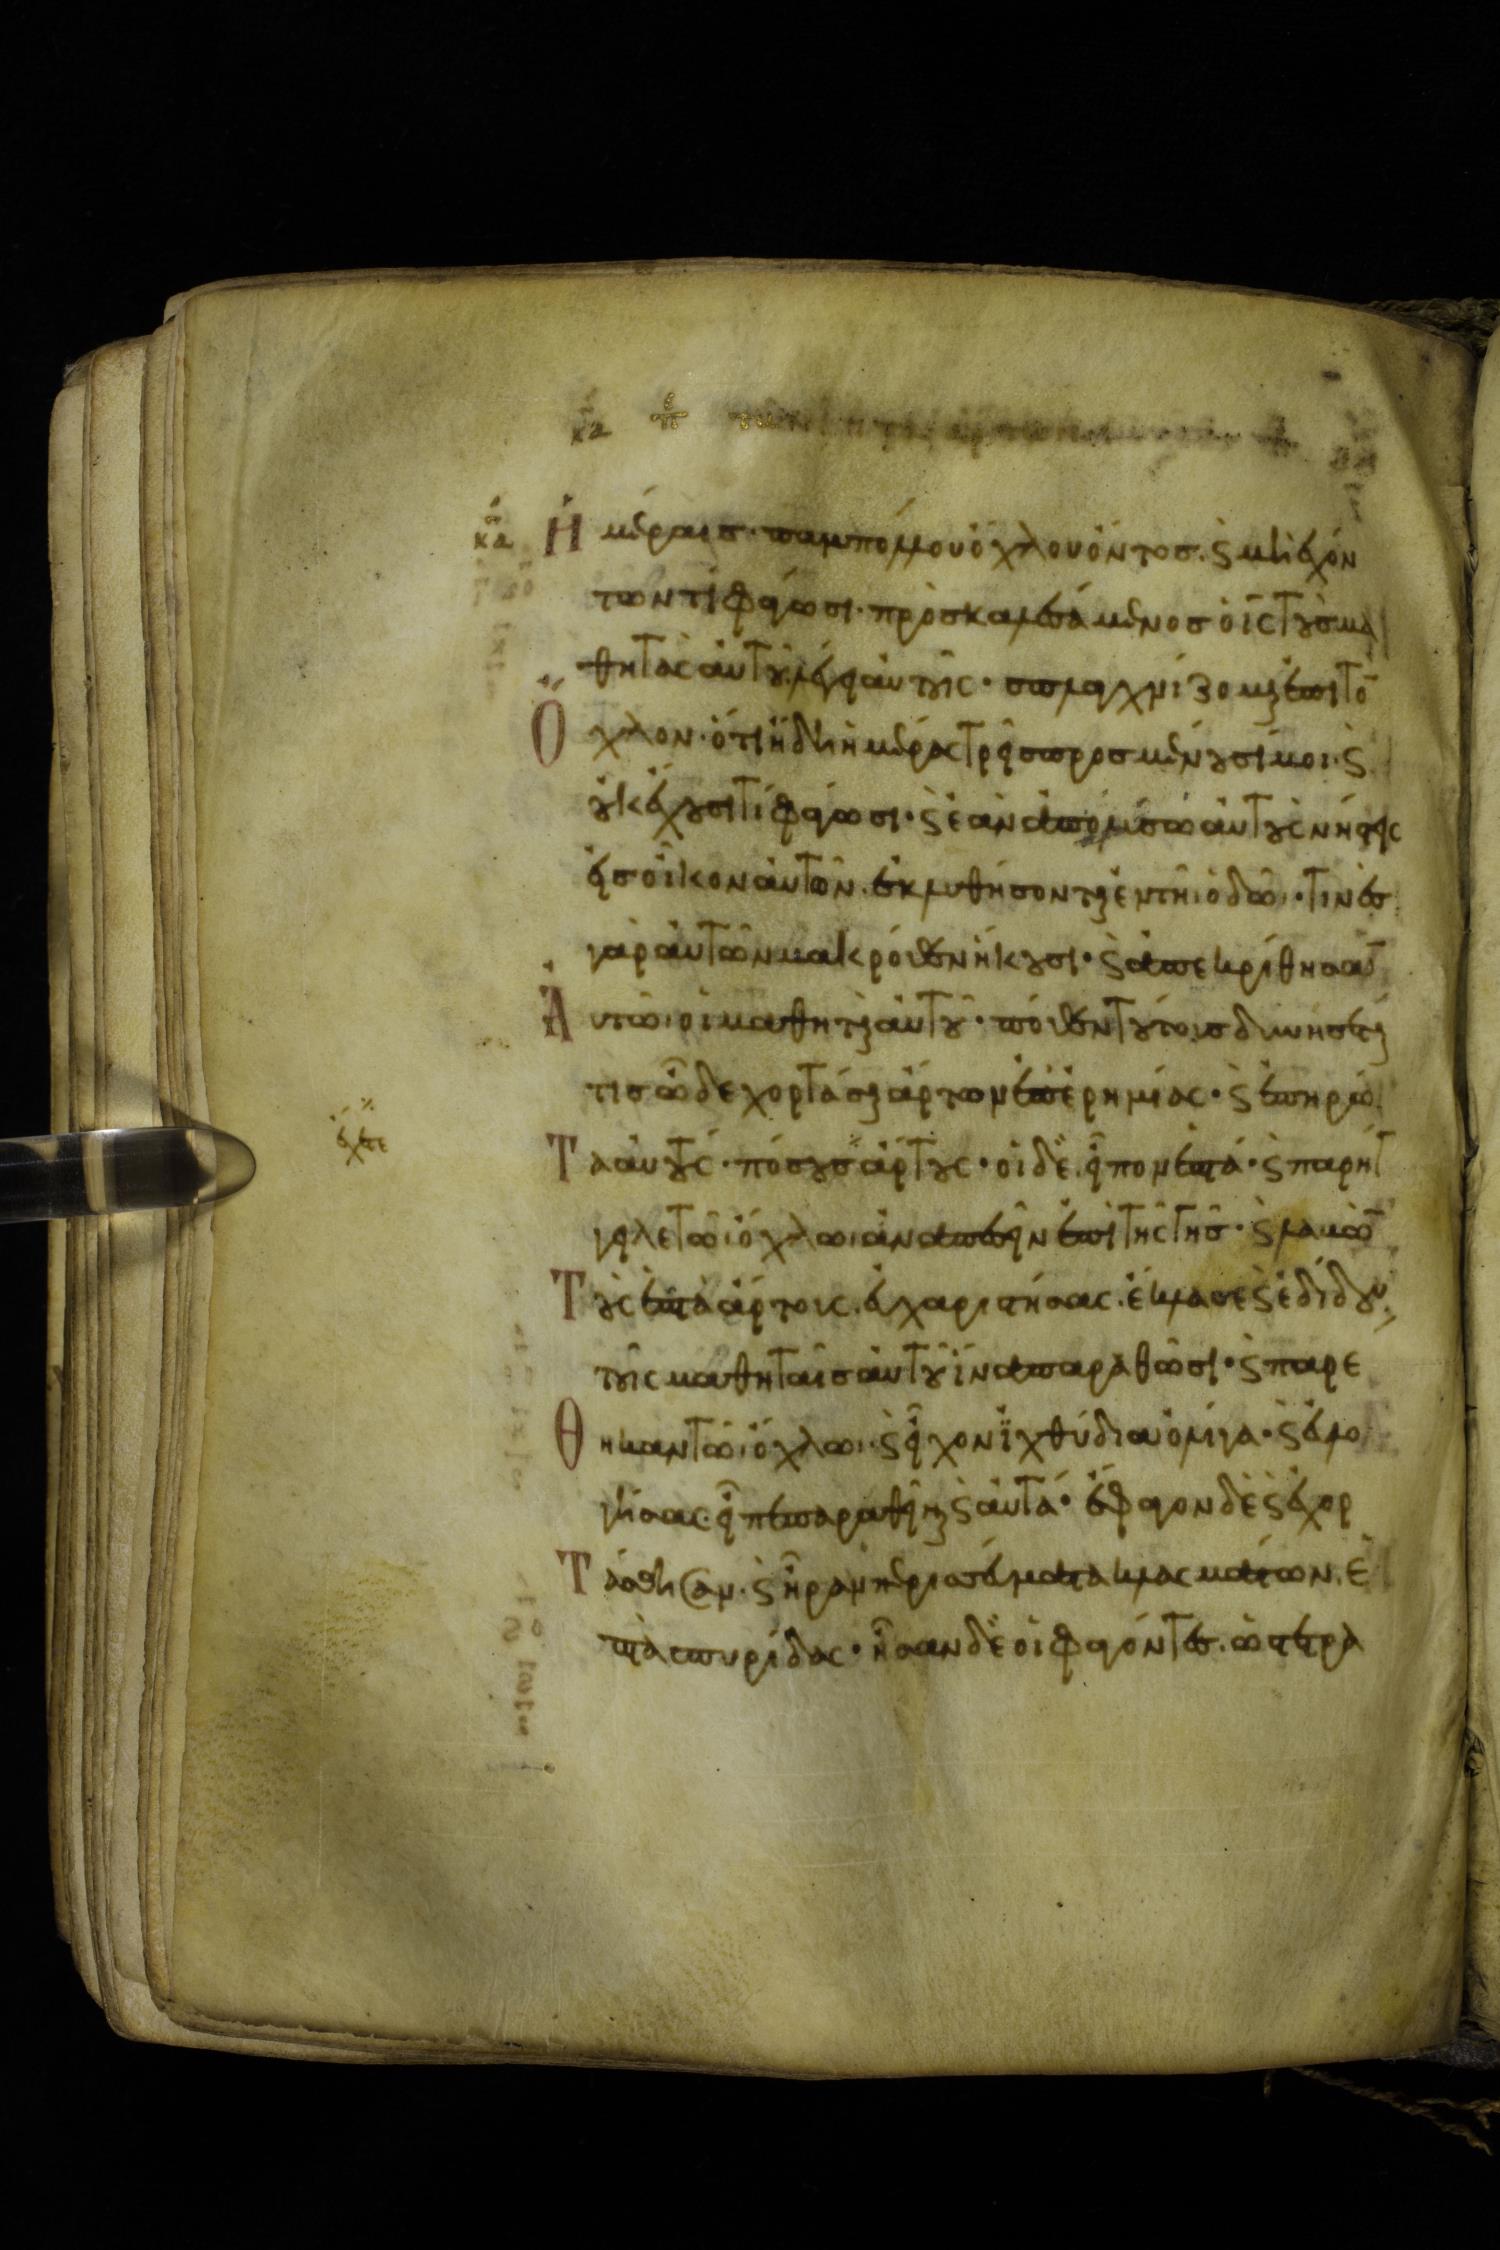 κα π τω
κα
Ἡμέραις· παμπόλλου ὄχλου ὄντος· ϛ μὴ ἐχόν
των τί φάγωσι· προσκαλεσάμενος ὁ ις τοὺς μα
θητὰς αὐτοῦ λέγει αὐτοῖς· σπλαγχνίζομαι ἐπὶ τὸ
Ὄχλον· ὅτι ἤδη ἡμέρας τρεῖς προσμένουσί μοι· ϛ
οὐκ ἔχουσι τί φάγωσι· ϛ ἐὰν ἀπολύσω αὐτοὺς νήστεις
εἰς οἶκον αὐτῶν. ἐκλυθήσονται ἐν τῆι ὁδῶι· τινὲς
γὰρ αὐτῶν μακρόθεν ἥκουσι· ϛ ἀπεκρίθησαν
Αὐτῶι οἱ μαθηταὶ αὐτοῦ· πόθεν τούτοις δυνήσεταί
τις ὧδε χορτάσαι ἄρτων ἐπ ἐρημίας· ϛ ἐπηρώ
Τα αὐτούς· πόσους ἔχετε ἄρτους· οἱ δὲ εἶπον ἑπτά· ϛ παρήγ
γειλε τῶι ὄχλωι ἀναπεσεῖν ἐπὶ τῆς γῆς· ϛ λαβὼν
Τοὺς ἑπτὰ ἄρτους. εὐχαριστήσας. ἔκλασε ϛ ἐδίδου
τοῖς μαθηταῖς αὐτοῦ ἵνα παραθῶσι· ϛ παρέ
Θηκαν τῶι ὄχλωι· ϛ εἶχον ἰχθύδια ὀλίγα· ϛ εὐλο
γήσας. εἶπε παραθεῖναι ϛ αὐτά· ἔφαγον δὲ ϛ ἐχορ
Τάσθησαν· ϛ ἦραν περισσεύματα κλασμάτων. ἑ
πτὰ σπυρίδας· ἦσαν δὲ οἱ φαγόντες. ὡς τετρα